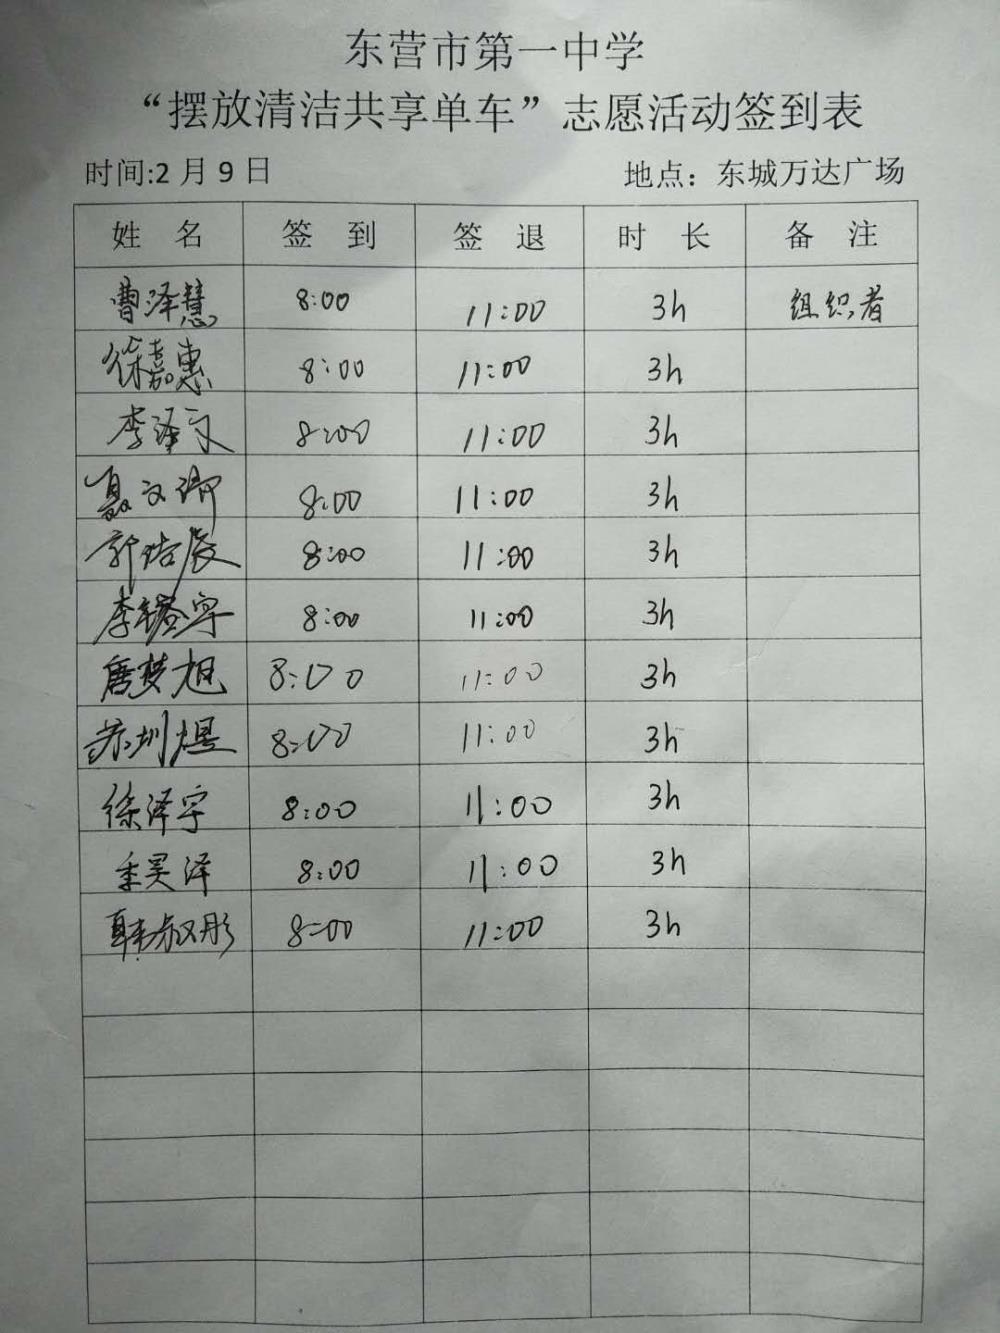 东营市第一中学
“摆放清洁共享单车”志愿活动签到表
时间:2月9日 地点：东城万达广场
姓 名 签 到 签 退 时 长 备 注
曹泽慧 8:00 11:00 3h 组织者
徐嘉惠 8:00 11:00 3h
李泽 8:00 11:00 3h
聂文卿 8:00 11:00 3h
郭浩辰 8:00 11:00 3h
李 宇 8:00 11:00 3h
唐梦旭 8:00 11:00 3h
苏圳煜 8:00 11:00 3h
徐泽宇 8:00 11:00 3h
季昊泽 8:00 11:00 3h
韩 彤 8:00 11:00 3h